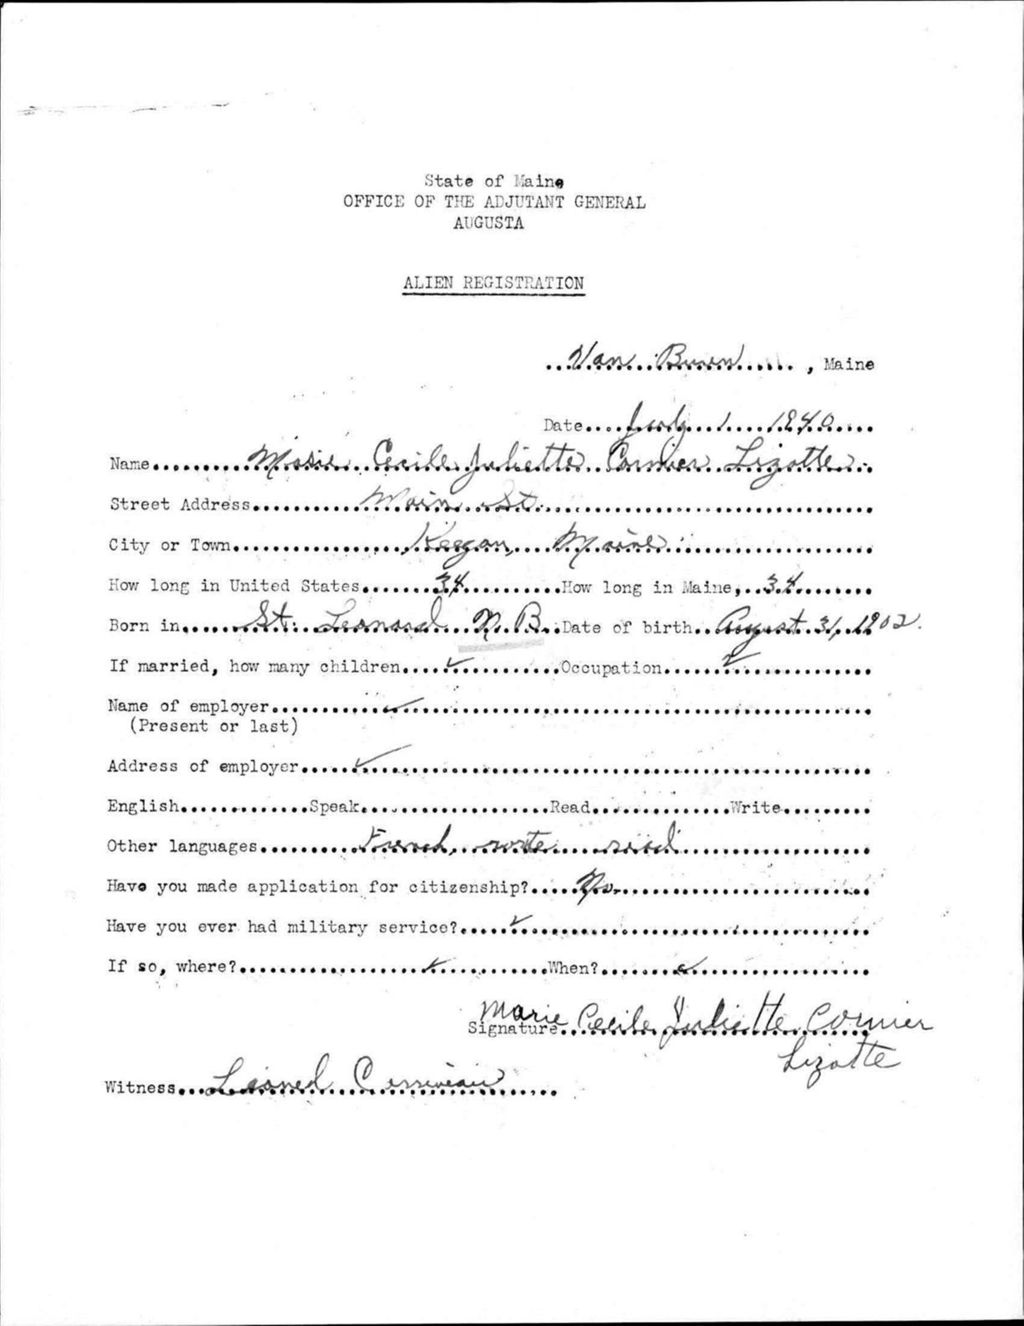 State of Maine
OFFICE OF THE ADJUTANT GENERAL
AUGUSTA
ALIEN REGISTRATION
Van Buren, Maine
Date July 1 1940
Name Marie Cecile Juliette Cormier Lizotte
Street Address Main St.
City or Town Keegan, Maine
How long in United States 34 How long in Maine, 34
Born in St. Leonard N. B. Date of birth August 31, 1902.
If married, how many children ✓ Occupation ✓
Name of employer ✓
(Present or last)
Address of employer ✓
English Speak Read Write
Other languages French, write read
Have you made application for citizenship? No.
Have you ever had military service? ✓
If so, where? ✓ When? ✓
Signature Marie Cecile Juliette Cormier
Lizotte
Witness Lionel